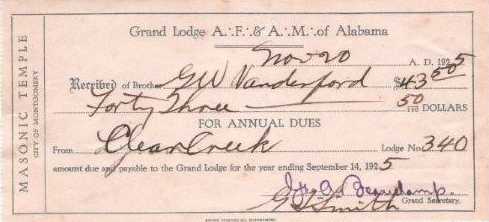 MASONIC TEMPLE
CITY OF MONTGOMERY
Grand Lodge A∴F∴& A∴M∴of Alabama
Nov 20 A. D. 1925
Received of Brother GW Vanderford $43 50
Forty Three 50/100 DOLLARS
FOR ANNUAL DUES
From Clear Creek Lodge No. 340
amount due and payable to the Grand Lodge for the year ending September 14, 1925
Beauchamp
Grand Secretary.
Smith